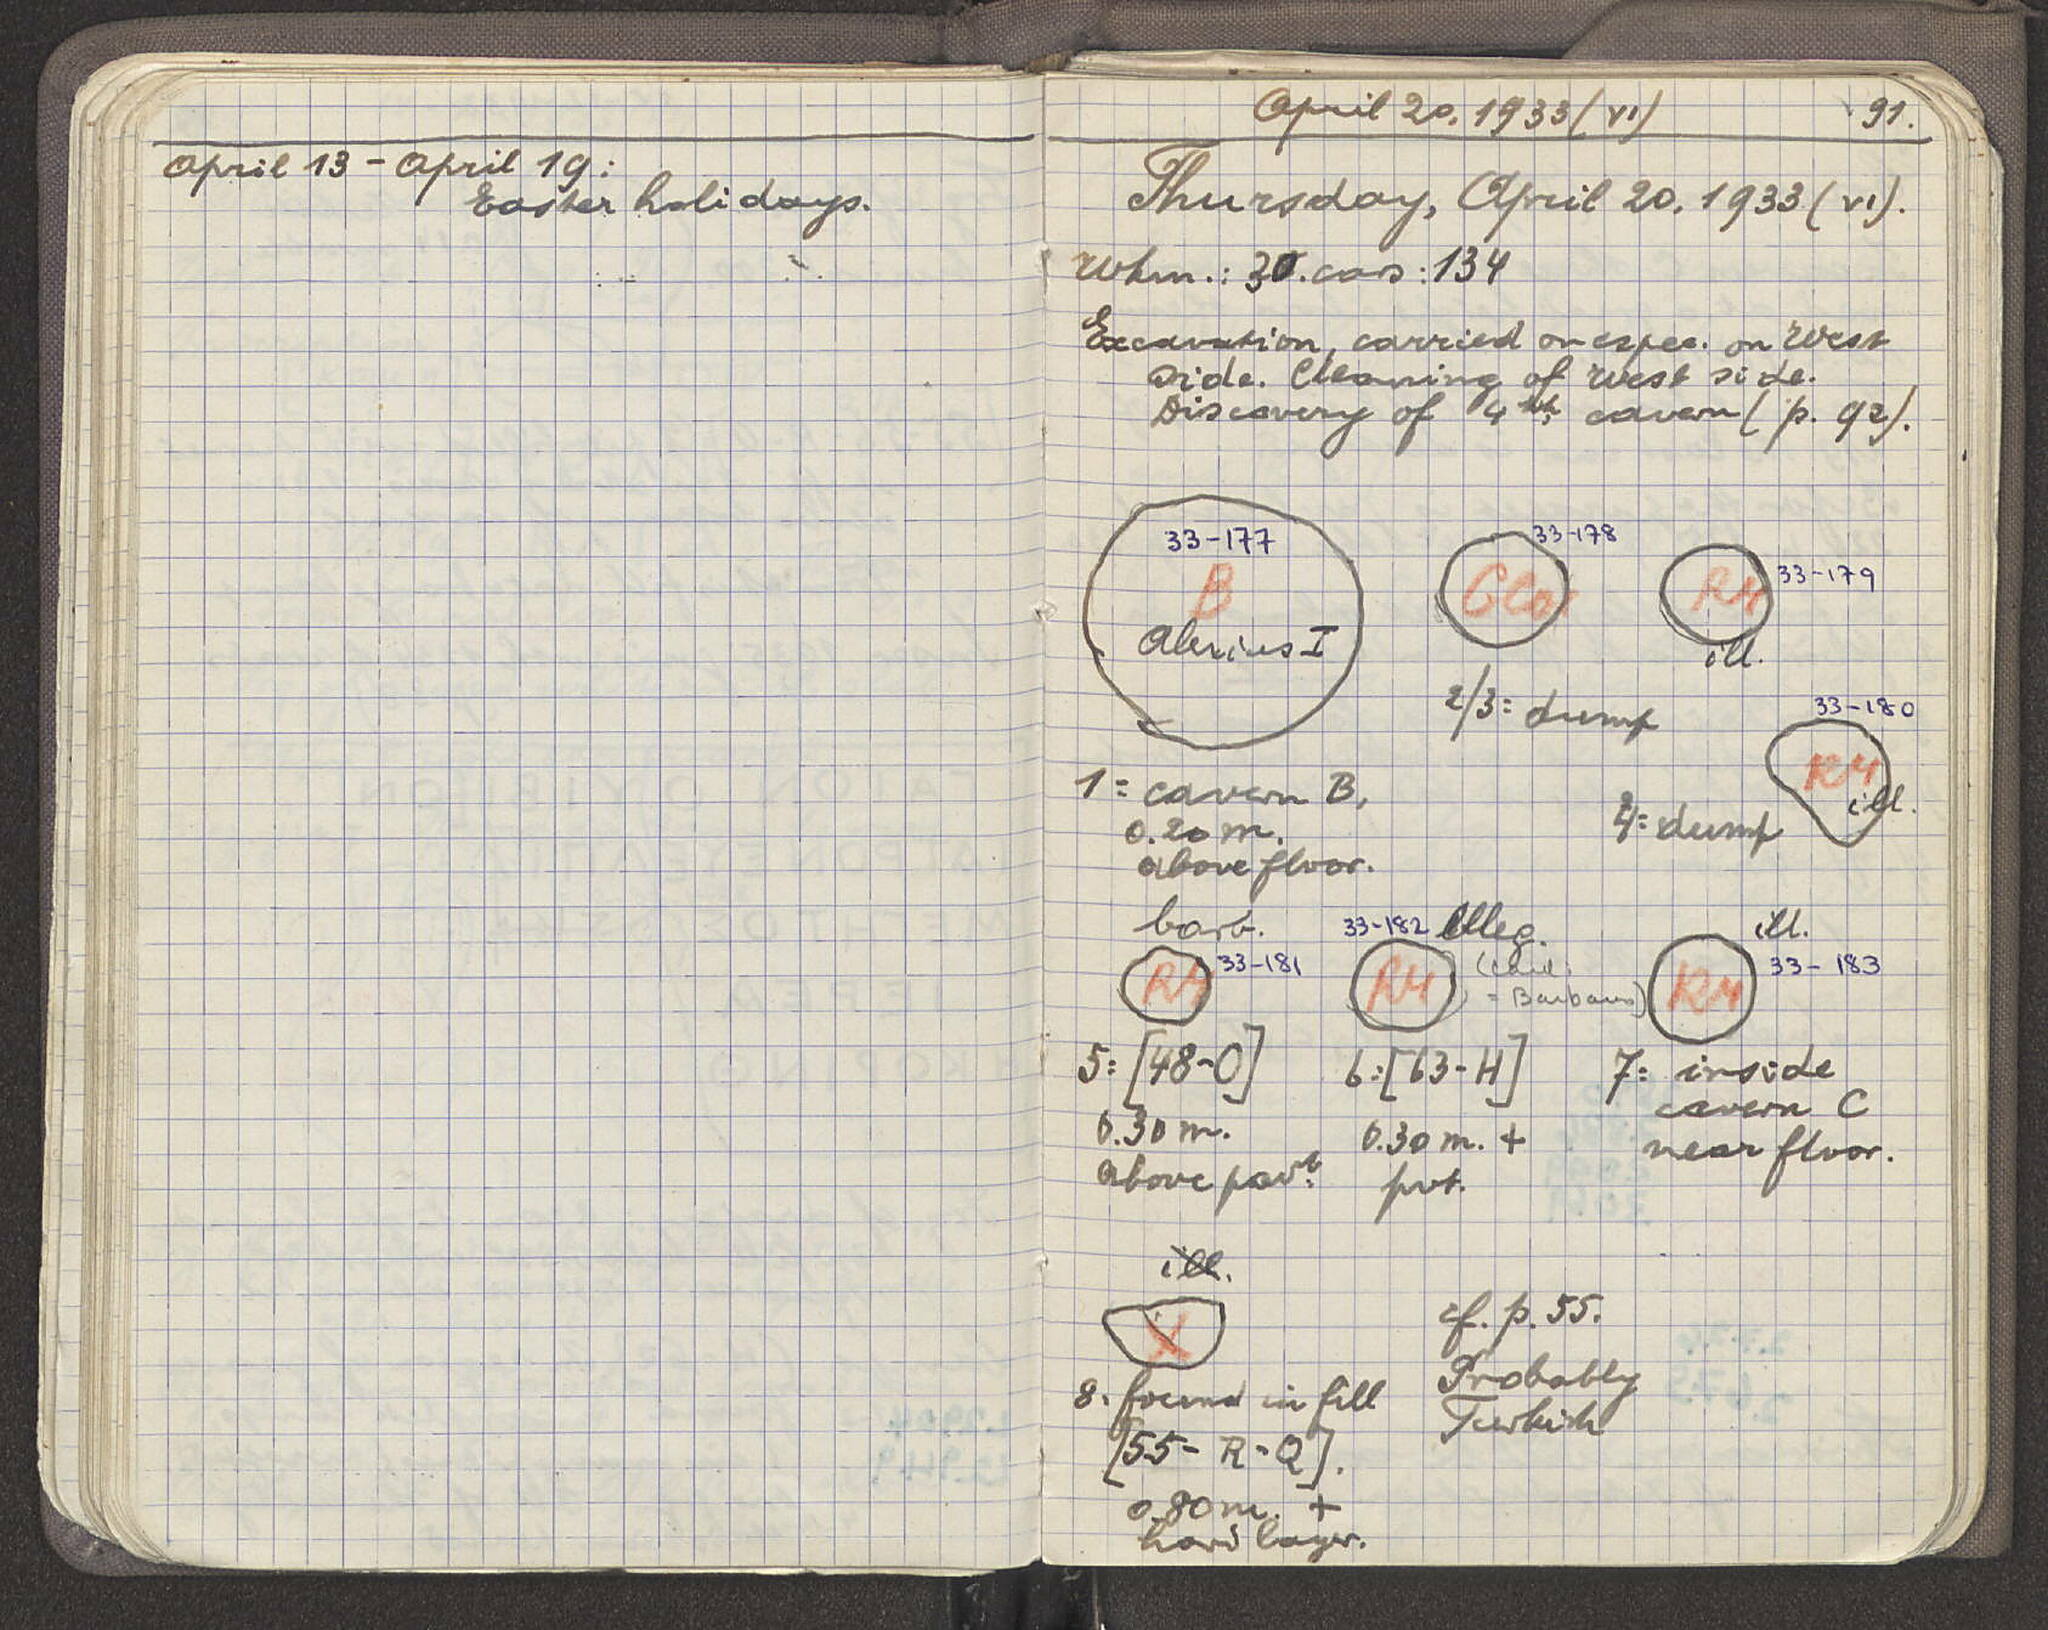 April 13 - April 19:
Easter holidays.
April 20. 1933 (VI) 91.
Thursday, April 20. 1933 (VI).
Wkm.: 30. cars: 134
Excavation, carried on espec. on West
side. Cleaning of West side.
Discovery of 4th cavern (p. 92).
33-177
B
Alexius I
33-178
33-179
R4
ill.
2/3 = dump
33-180
R4
ill.
1 = cavern B,
0.20 m.
above floor.
4 = dump
barb.
R4
33-181
33-182 Illeg.
R4
= Barbarus)
ill.
R4
33-183
5 = [48-O]
0.30 m.
above pavt.
6 = [63-H]
0.30 m. +
pvt.
7 = inside
cavern C
near floor.
ill.
X
8. found in fill
[55-R-Q].
0.80 m. +
hard layer.
cf. p. 55.
Probably
Turkish